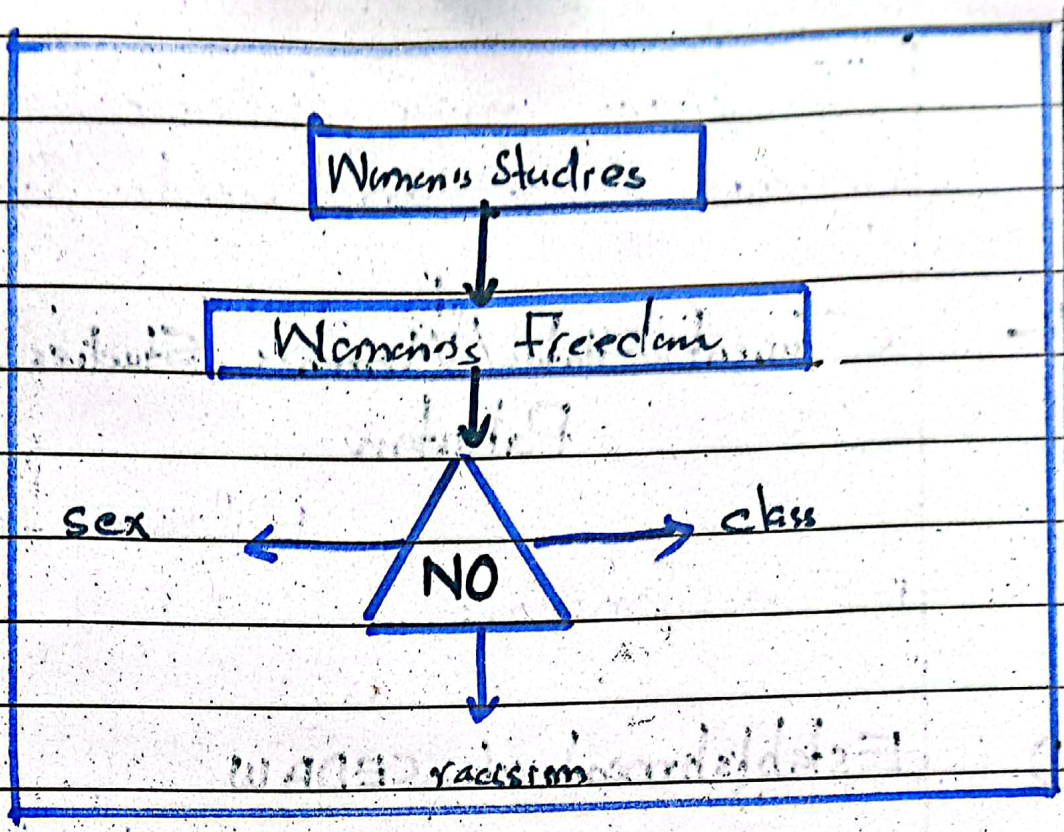 Women's Studies
Women's Freedom
sex
class
NO
racissm